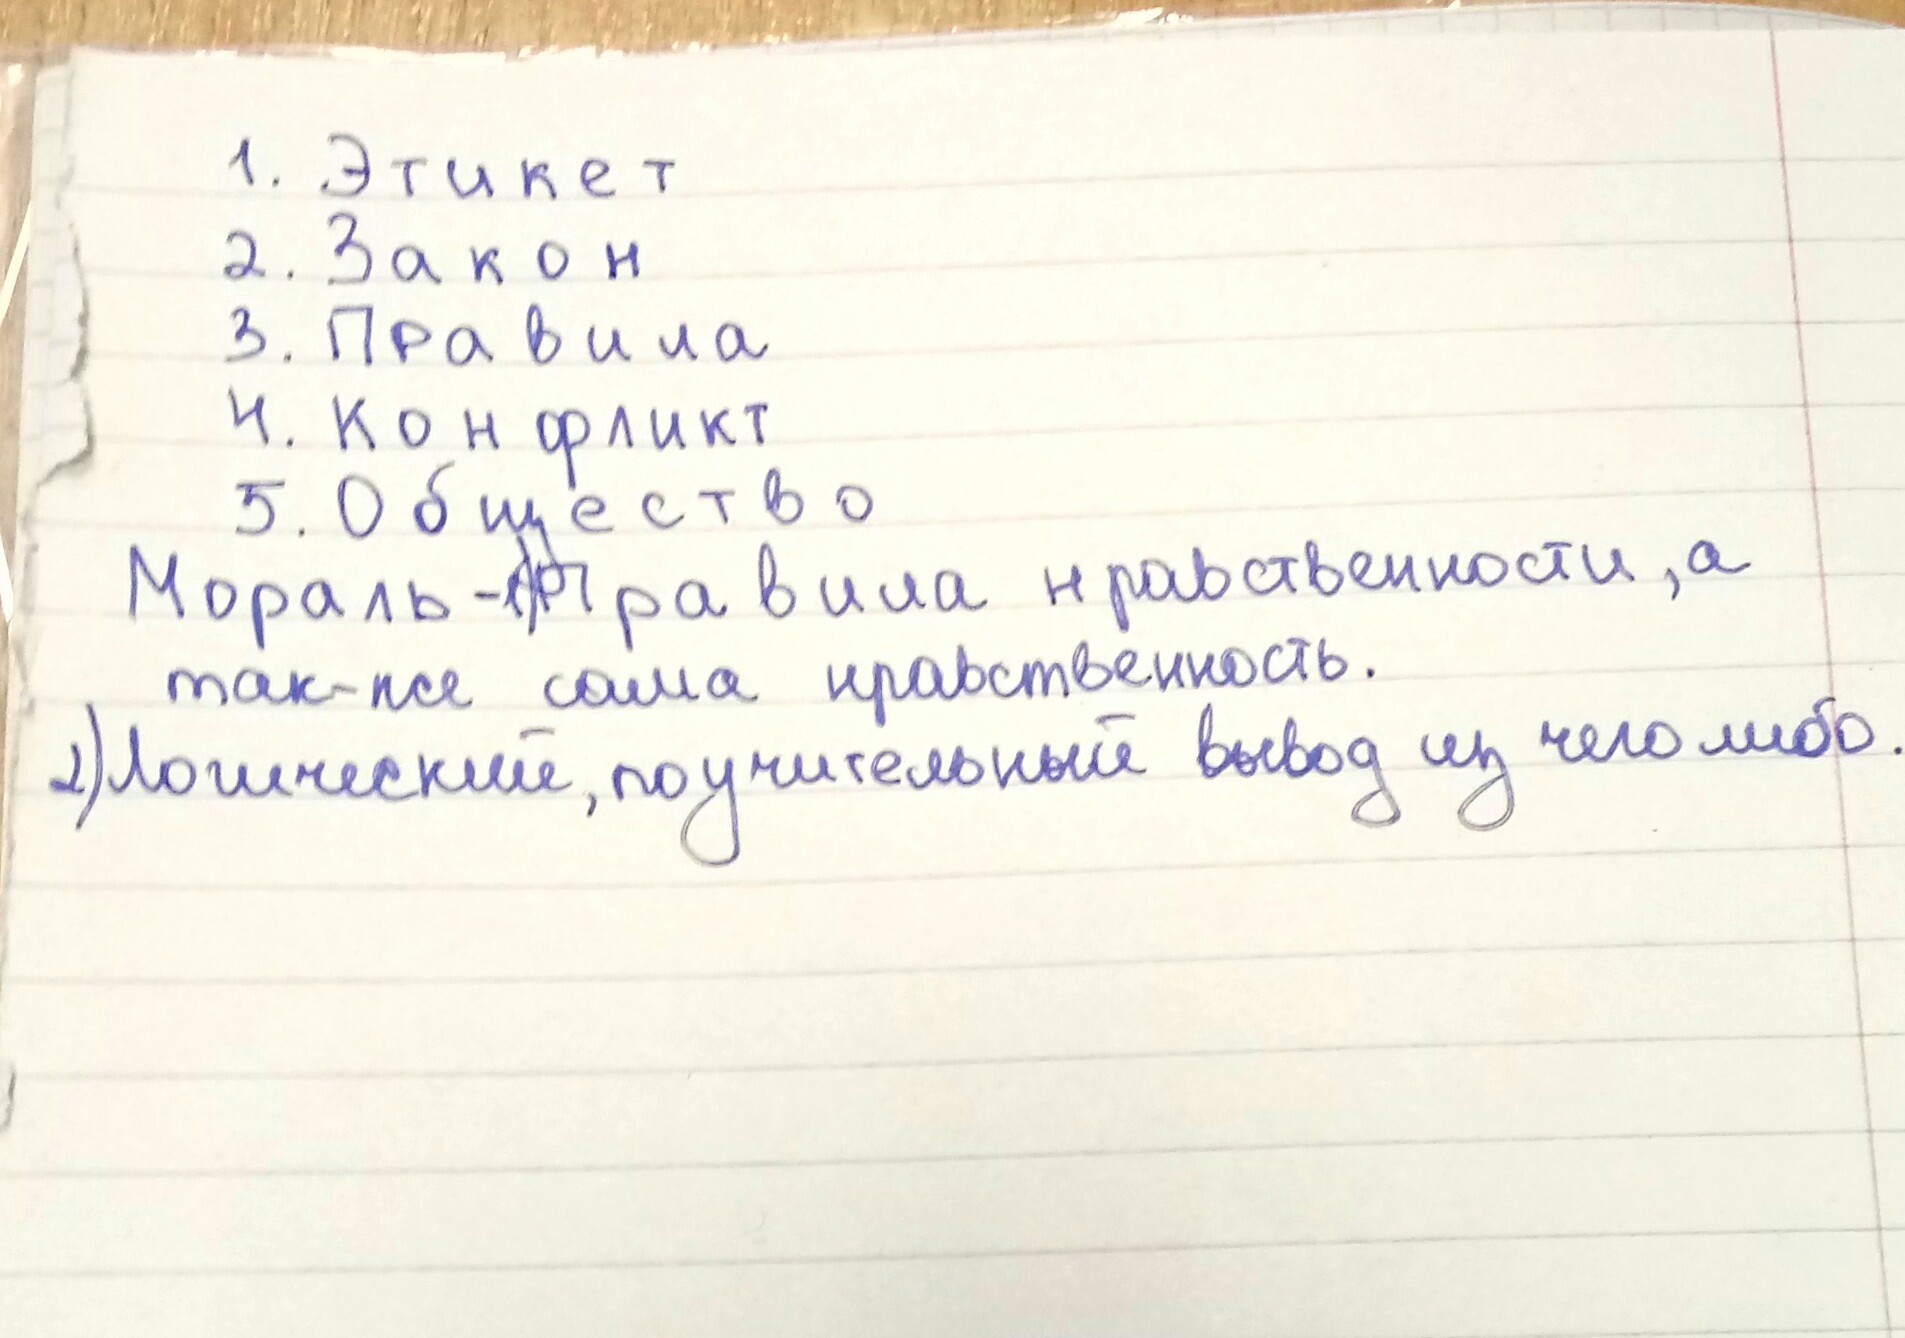 1. Этикет
2. Закон
3. Правила
4. Конфликт
5. Общество
Мораль - 1) Правила нравственности, а
так-же сама нравственность.
2) Логический, поучительный вывод из чего либо.